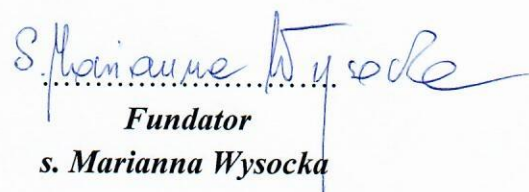 S. Marianna Wysocka
Fundator
s. Marianna Wysocka